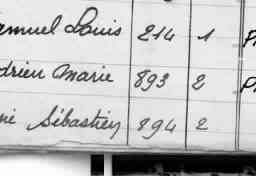 amuel Louis 214 1 P
drien Marie 893 2 P
né Sébastien 894 2